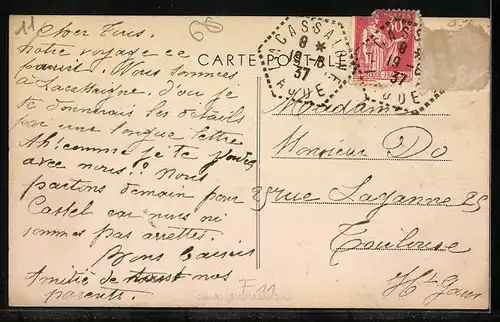 11
68
Cher
notre voyage ce
poursuit. Nous sommes
à Lacassaigne. D'où je
te donnerais les details
par une longue lettre
Ah! comme je te
avec nous!! Nous
partons demain pour
Castel car nous ni
sommes pas arrettes.
Bons baisers
Amitié de nos
parents.
CARTE POSTALE
LACASSAIGNE
8 *
19-8
37
AUDE
50
8
19-8
37
AUDE
Madame
Monsieur Do
25 rue Laganne 25
Toulouse
Hte Gar
F 11